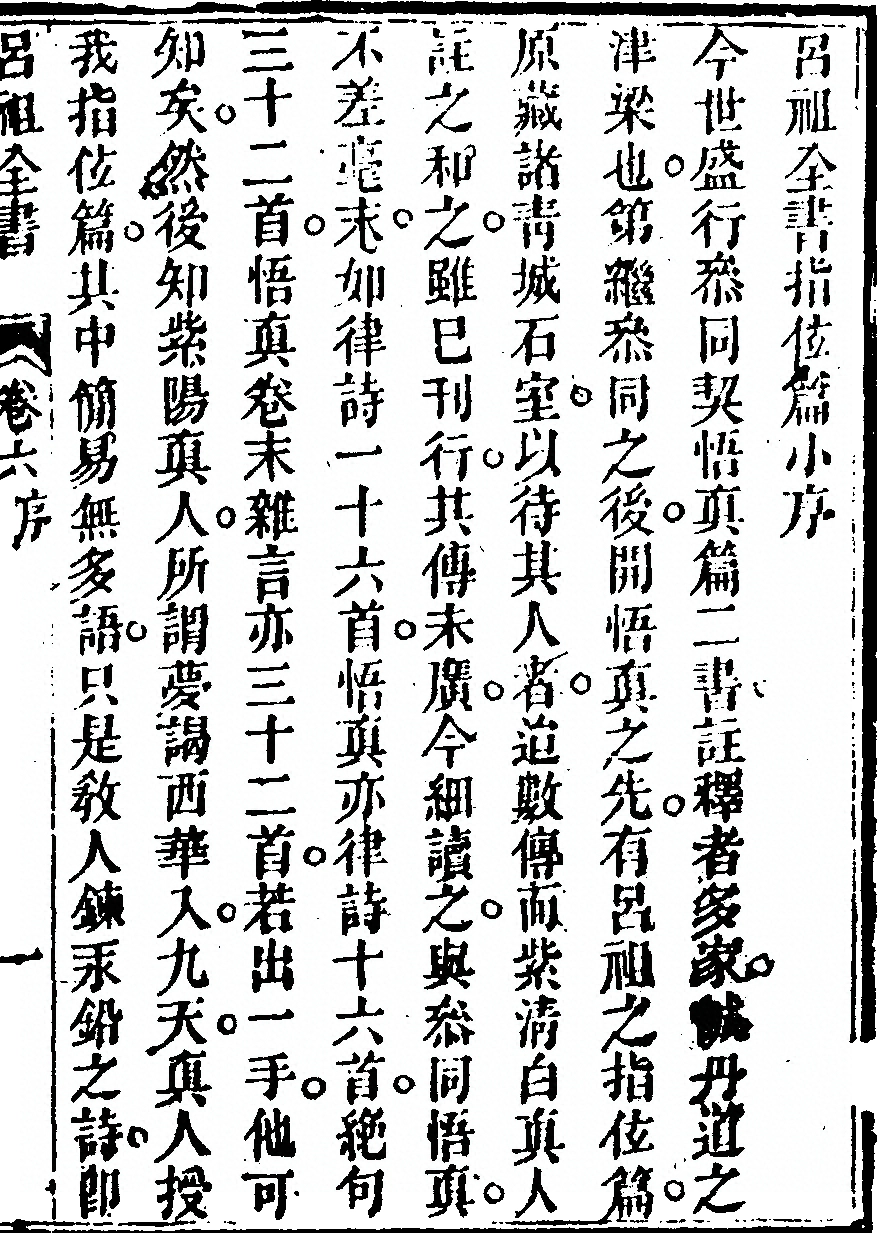 呂祖全書指𤣥篇小序
今世盛行叅同契悟真篇二書註釋者多家誠丹道之
津梁也第繼叅同之後開悟真之先有呂祖之指𤣥篇
原藏諸青城石室以待其人者迨數傳而紫清白真人
註之和之雖已刊行其傳未廣今細讀之與叅同悟真
不差毫末如律詩一十六首悟真亦律詩十六首絕句
三十二首悟真卷末雜言亦三十二首若出一手他可
知矣然後知紫陽真人所謂夢謁西華入九天真人授
我指𤣥篇其中簡易無多語只是敎人鍊汞鉛之詩卽
呂祖全書 卷六序 一